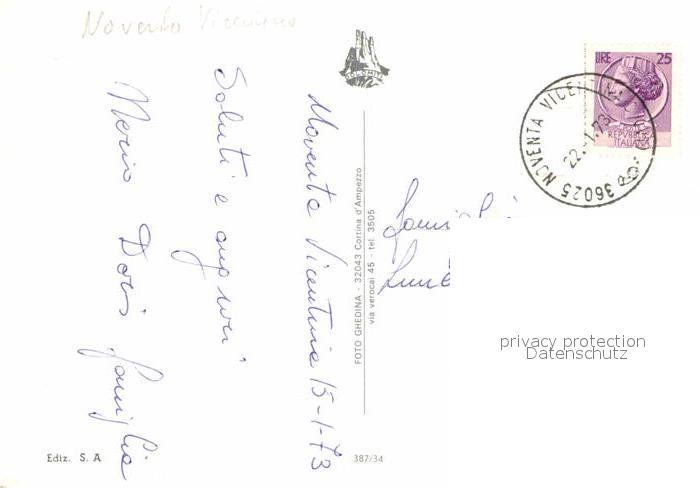 Novento Vicentino
Noventa Vicentina 15-1-73
Saluti e auguri
Mario Dori famiglia
DOLOMITI
FOTO GHEDINA - 32043 Cortina d'Ampezzo
via verocai 45 - tel. 3505
LIRE 25
REPUBBLICA
ITALIANA
36025 NOVENTA VICENTINA
22.-1.73
privacy protection
Datenschutz
Ediz. S. A
387/34